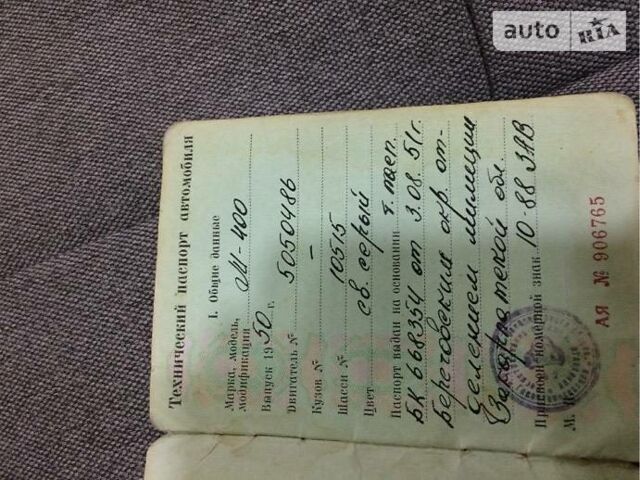 auto RIA
Технический паспорт автомобиля
I. Общие данные
Марка, модель,
модификация М-400
Выпуск 1950 г.
Двигатель № 5050486
Кузов № —
Шасси № 10515
Цвет св. серый
Паспорт выдан на основании т. пасп.
БК 668354 от 3.08.51г.
Береговским окр. от-
делением милиции
Закарпатской обл.
Присвоен номерной знак 10-88 ЗАВ
М.
АЯ № 906765